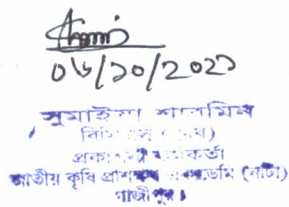 ০৬/১০/২০২১
সুমাইয়া শারমিন
বিসিএস (কৃষি)
প্রকাশনা কর্মকর্তা
জাতীয় কৃষি প্রশিক্ষণ একাডেমি (নাটা)
গাজীপুর।